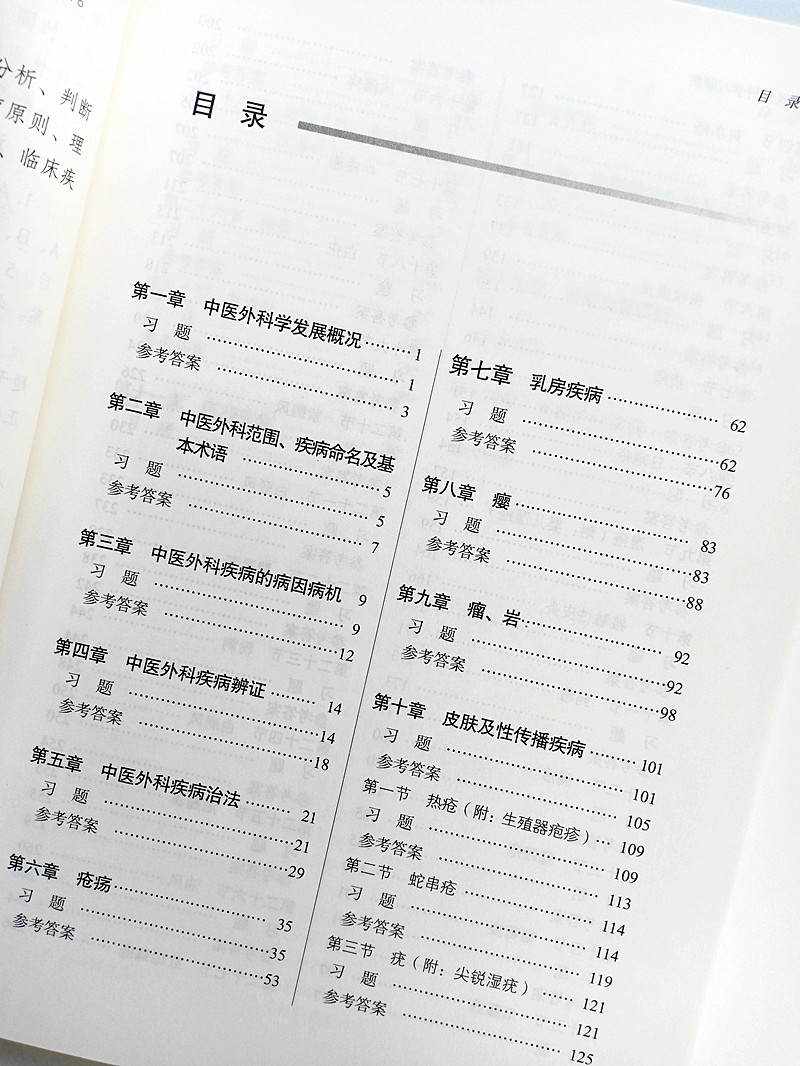 分析、判断
原则、理
、临床疾
目 录
目 录
第一章 中医外科学发展概况………1
习 题……………………………1
参考答案…………………………3
第二章 中医外科范围、疾病命名及基
本术语……………………5
习 题……………………………5
参考答案…………………………7
第三章 中医外科疾病的病因病机 9
习 题……………………………9
参考答案…………………………12
第四章 中医外科疾病辨证………14
习 题……………………………14
参考答案…………………………18
第五章 中医外科疾病治法………21
习 题……………………………21
参考答案…………………………29
第六章 疮疡……………………35
习 题……………………………35
参考答案…………………………53
第七章 乳房疾病………………62
习 题……………………………62
参考答案…………………………76
第八章 瘿………………………83
习 题……………………………83
参考答案…………………………88
第九章 瘤、岩…………………92
习 题……………………………92
参考答案…………………………98
第十章 皮肤及性传播疾病………101
习 题……………………………101
参考答案…………………………105
第一节 热疮（附：生殖器疱疹）…109
习 题……………………………109
参考答案…………………………113
第二节 蛇串疮…………………114
习 题……………………………114
参考答案…………………………119
第三节 疣（附：尖锐湿疣）……121
习 题……………………………121
参考答案…………………………125